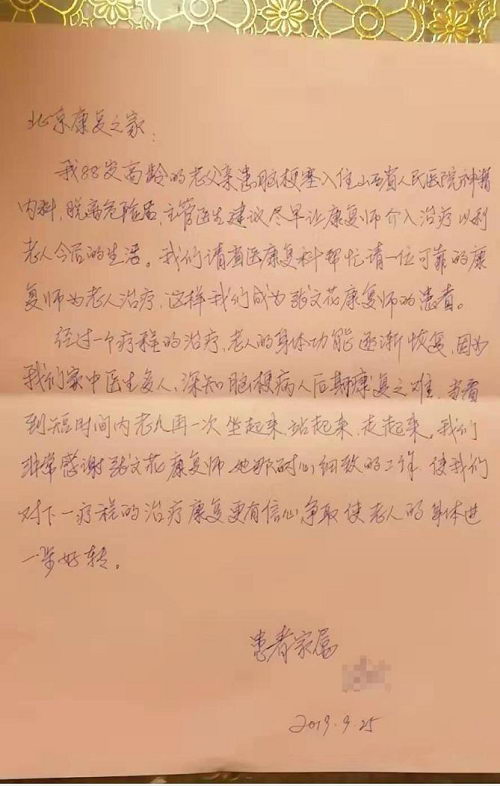 北京康复之家:
我88岁高龄的老父亲患脑梗塞入住山西省人民医院神经
内科,脱离危险后,主管医生建议尽早让康复师介入治疗以利
老人今后的生活。我们请省医康复科帮忙请一位可靠的康
复师为老人治疗,这样我们成为张文花康复师的患者。
经过一个疗程的治疗,老人的身体功能逐渐恢复,因为
我们家中医生多人,深知脑梗病人后期康复之难,当看
到短时间内老人再一次坐起来,站起来,走起来,我们
非常感谢张文花康复师,她那耐心细致的工作,使我们
对下一疗程的治疗康复更有信心,争取使老人的身体进
一步好转。
患者家属
2019.9.25